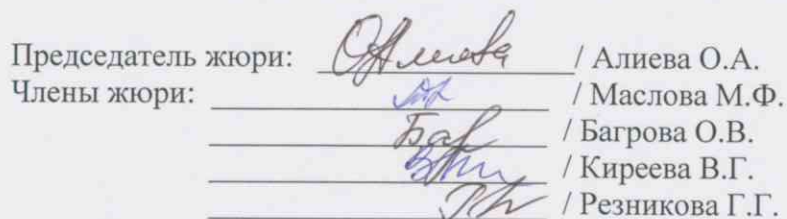 Председатель жюри: / Алиева О.А.
Члены жюри: / Маслова М.Ф.
/ Багрова О.В.
/ Киреева В.Г.
/ Резникова Г.Г.